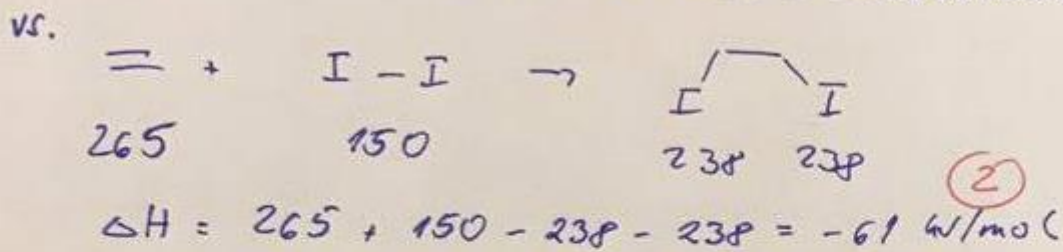 vs.
= + I - I → I I
265 150 238 238
②
ΔH = 265 + 150 - 238 - 238 = -61 kJ/mol